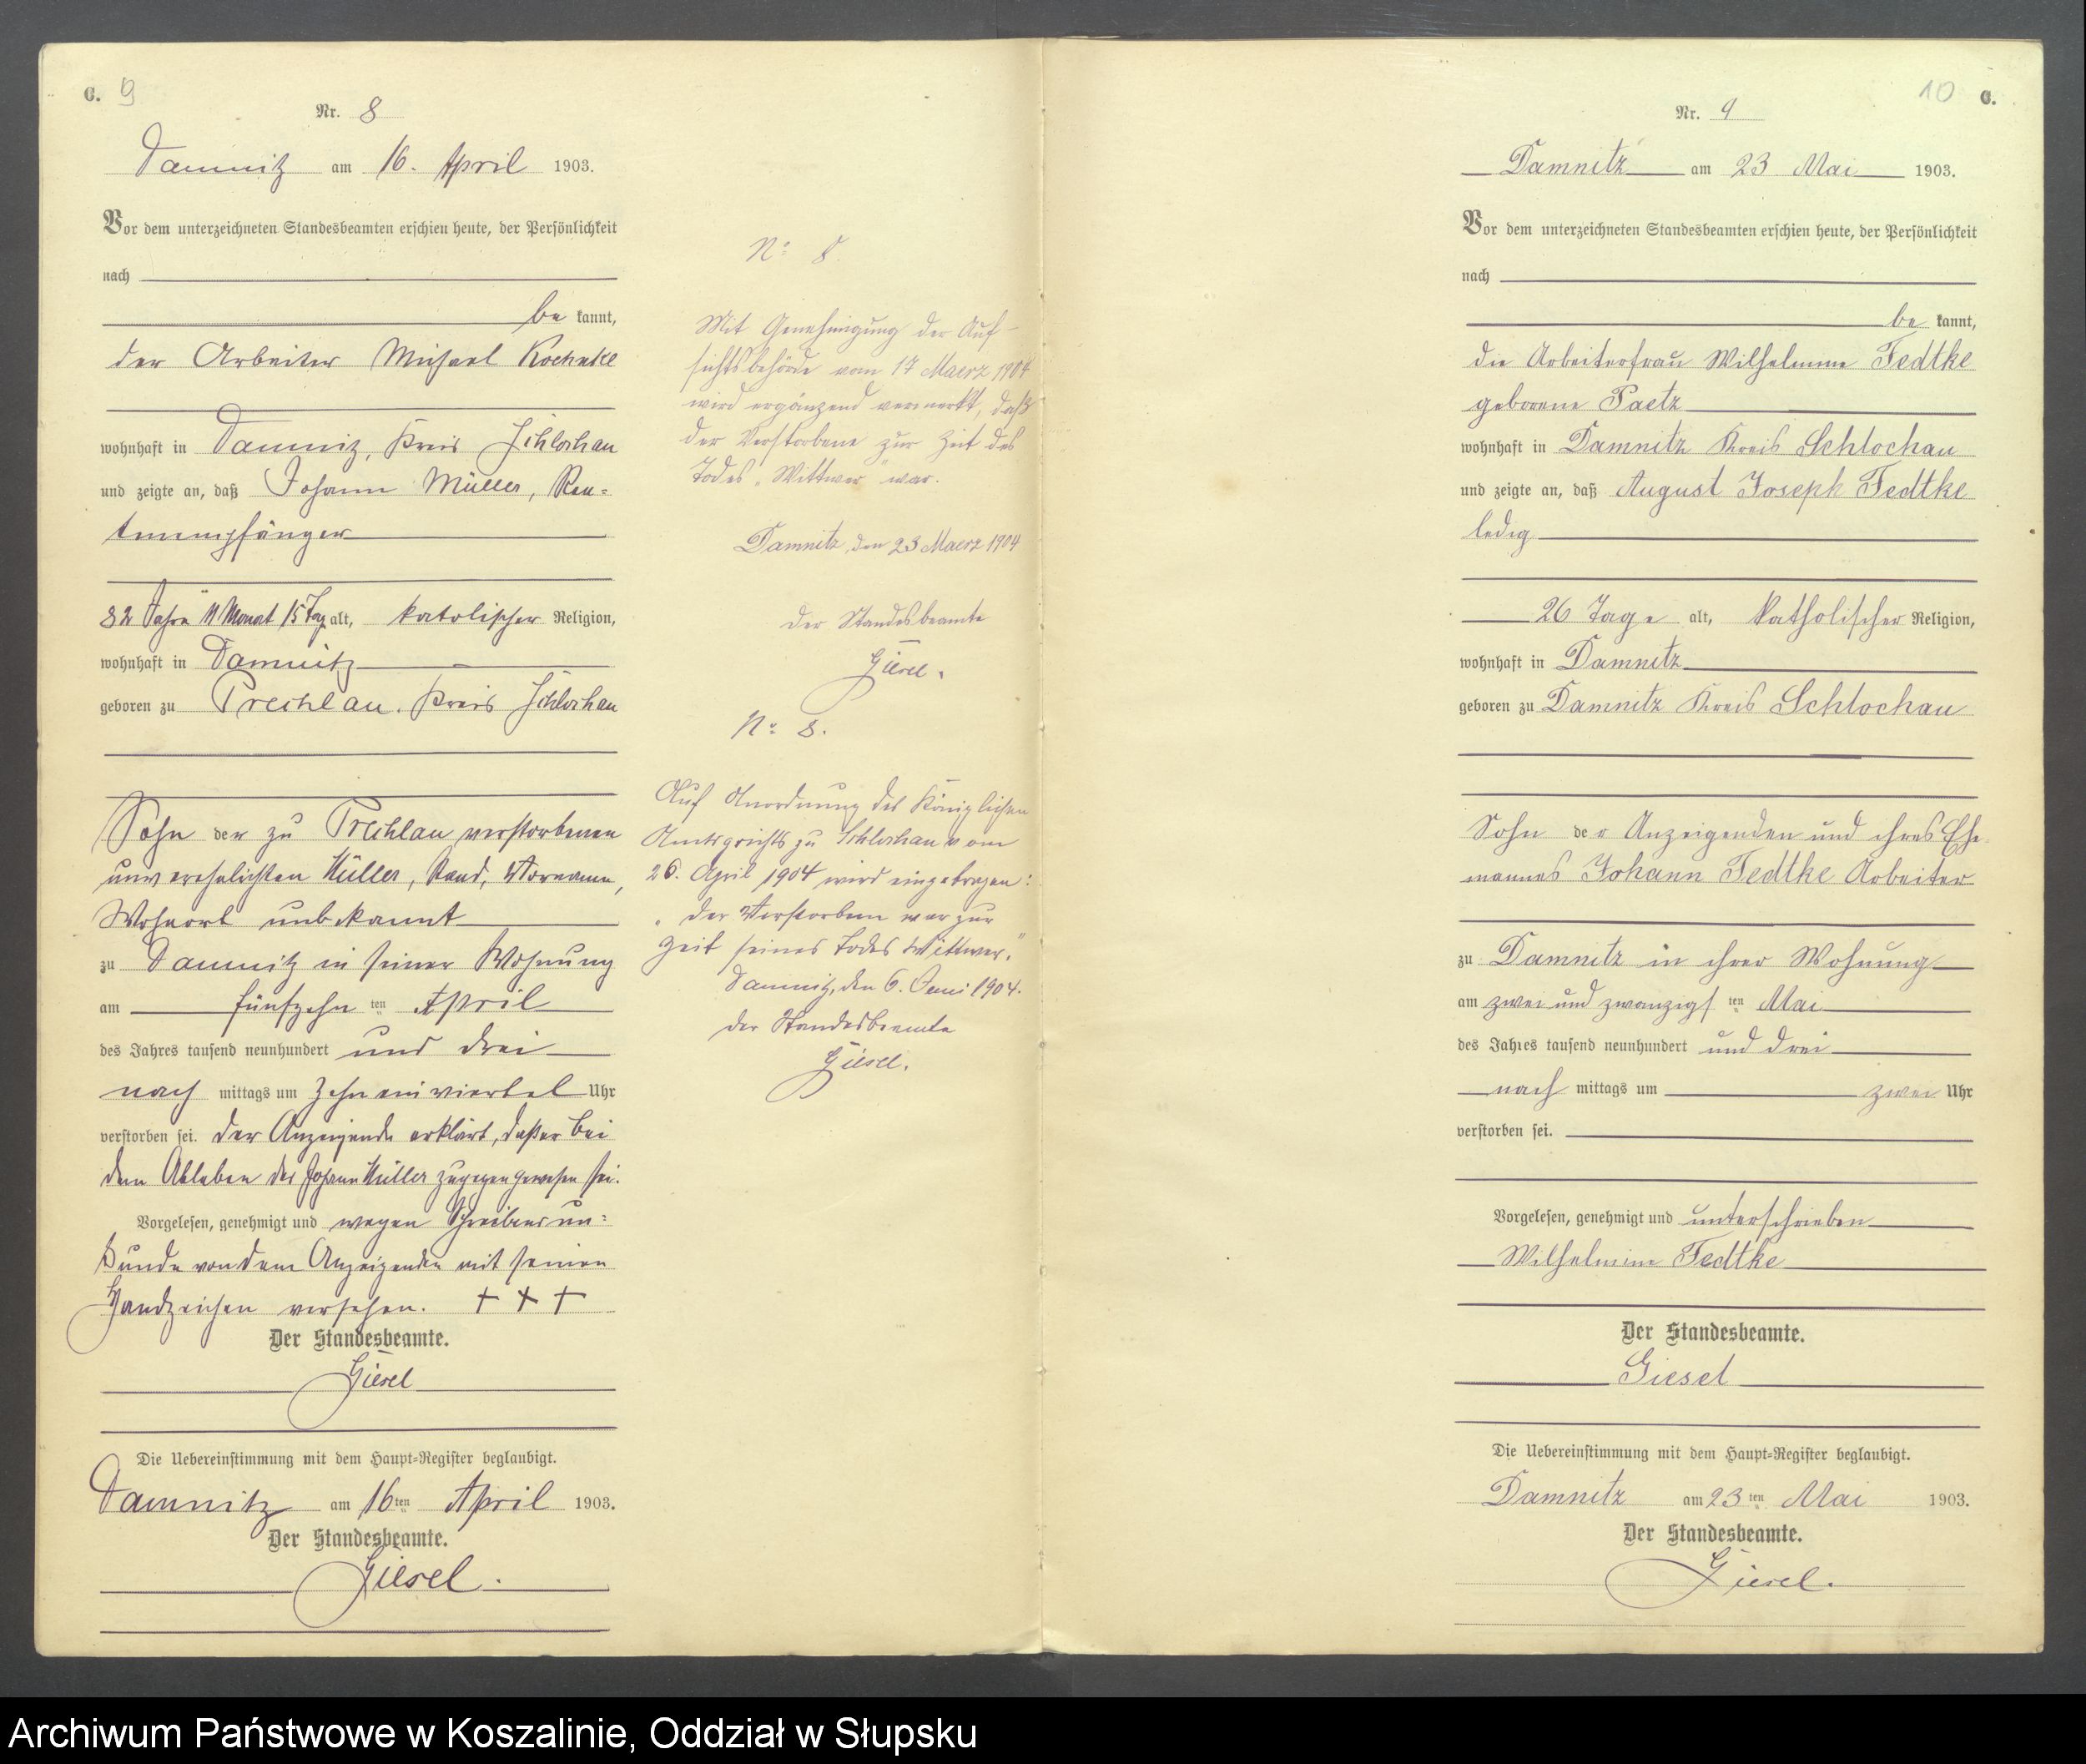 C. 9
Nr. 8
Damnitz am 16. April 1903.
Vor dem unterzeichneten Standesbeamten erschien heute, der Persönlichkeit
nach
be kannt,
der Arbeiter Michael
wohnhaft in Damnitz, Kreis Schlochau
und zeigte an, daß Johann Müller, Ren=
tenempfänger
82 Jahre 11 Monat 15 Tag alt, katolischer Religion,
wohnhaft in Damnitz
geboren zu Prechlau. Kreis Schlochau
Sohn der zu Prechlau verstorbenen
unverehelichten Müller, Stand, Vorname,
Wohnort unbekannt
zu Damnitz in seiner Wohnung
am fünfzehn ten April
des Jahres tausend neunhundert und drei
nach mittags um zehn ein viertel Uhr
verstorben sei. Der Anzeigende erklärt, daß er bei
dem Ableben des Johann Müller zugegen gewesen sei.
Vorgelesen, genehmigt und wegen Schreibens un=
kunde von dem Anzeigenden mit seinen
Handzeichen versehen. + + +
Der Standesbeamte.
Giesel
Die Uebereinstimmung mit dem Haupt=Register beglaubigt.
Damnitz am 16ten April 1903.
Der Standesbeamte.
Giesel.
No 8.
Mit Genehmigung der Auf-
sichtsbehörde vom 17 Maerz 1904
wird ergänzend vermerkt, daß
der Verstorbene zur Zeit des
Todes „Wittwer" war.
Damnitz, den 23 Maerz 1904
Der Standesbeamte
Giesel.
No 8.
Auf Anordnung des Königlichen
Amtsgerichts zu Schlochau vom
26. April 1904 wird eingetragen:
„Der Verstorbene war zur
Zeit seines Todes Wittwer."
Damnitz, den 6. Juni 1904.
Der Standesbeamte
Giesel.
10 C.
Nr. 9
Damnitz am 23 Mai 1903.
Vor dem unterzeichneten Standesbeamten erschien heute, der Persönlichkeit
nach
be kannt,
die Arbeiterfrau Wilhelmine Fedtke
geborene Paetz
wohnhaft in Damnitz Kreis Schlochau
und zeigte an, daß August Joseph Fedtke
ledig
26 Tage alt, katholischer Religion,
wohnhaft in Damnitz
geboren zu Damnitz Kreis Schlochau
Sohn der Anzeigenden und ihres Ehe
mannes Johann Fedtke Arbeiter
zu Damnitz in ihrer Wohnung
am zwei und zwanzigs ten Mai
des Jahres tausend neunhundert und drei
nach mittags um zwei Uhr
verstorben sei.
Vorgelesen, genehmigt und unterschrieben
Wilhelmine Fedtke
Der Standesbeamte.
Giesel
Die Uebereinstimmung mit dem Haupt=Register beglaubigt.
Damnitz am 23 ten Mai 1903.
Der Standesbeamte.
Giesel.
Archiwum Państwowe w Koszalinie, Oddział w Słupsku